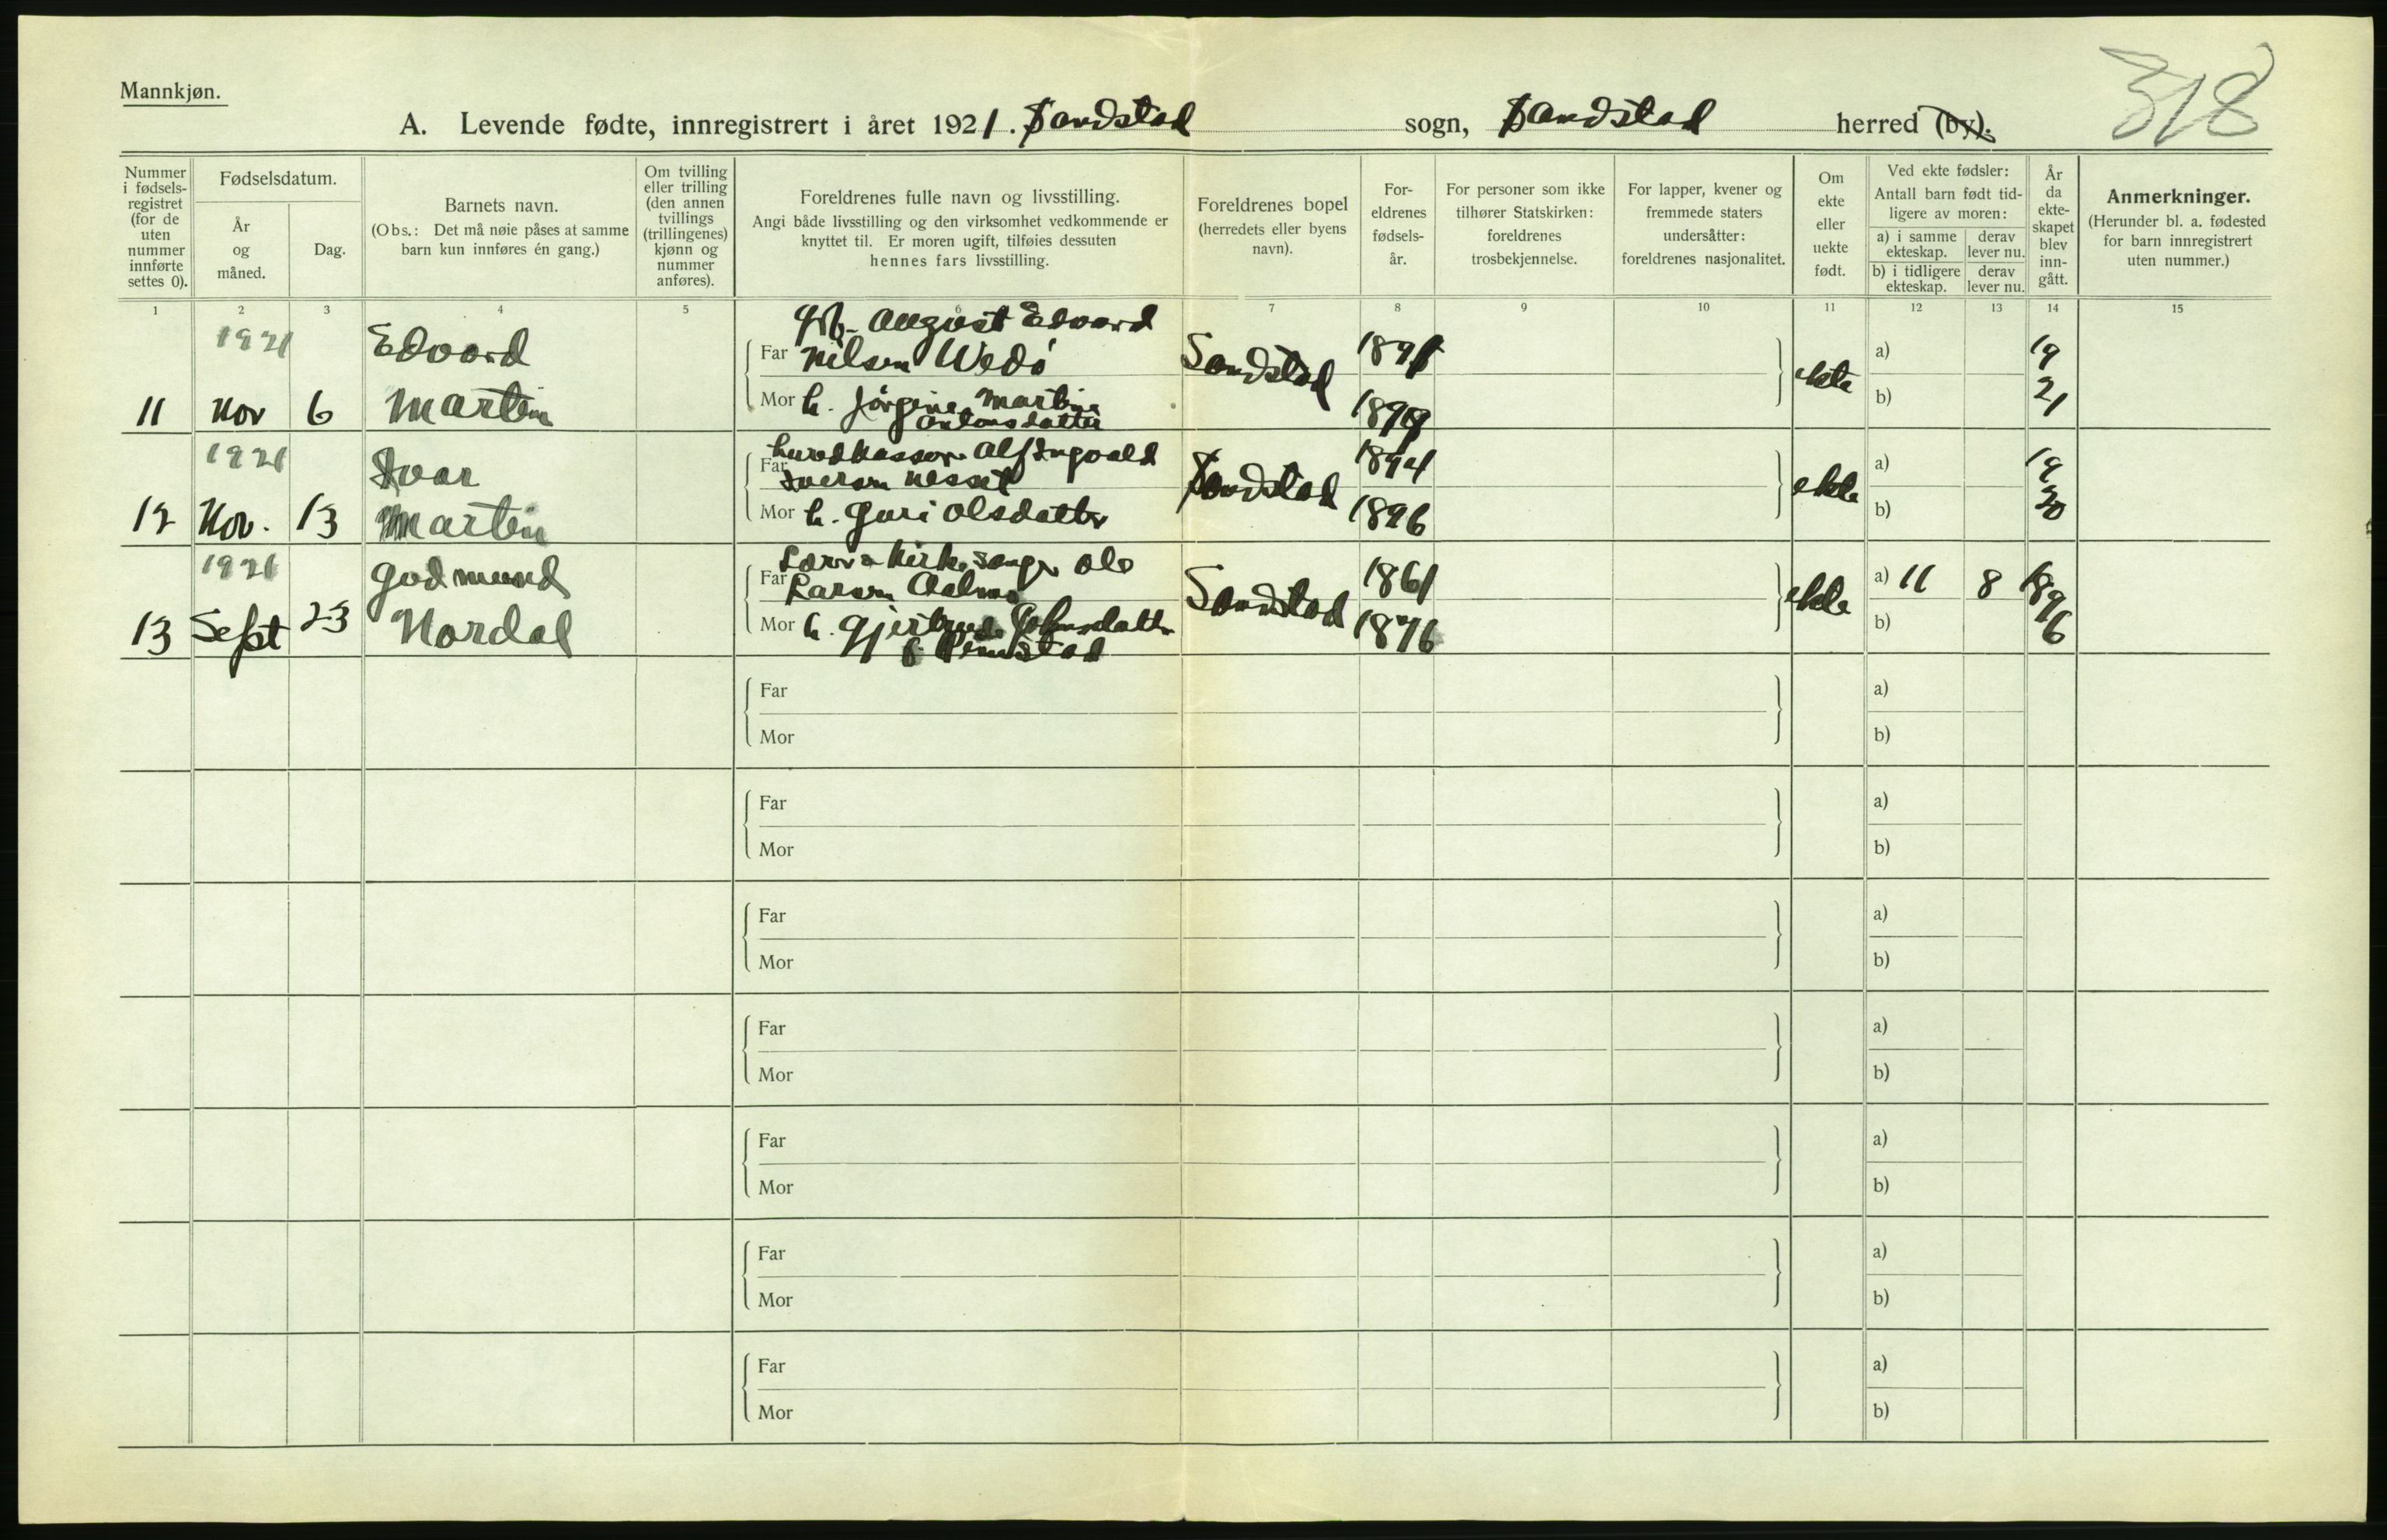 Mannkjøn.
318
A. Levende fødte, innregistrert i året 1921. Sandstad sogn, Sandstad herred (by).
Nummer i fødsels-registret (for de uten nummer innførte settes 0).
Fødselsdatum.
År og måned.
Dag.
Barnets navn.
(Obs.: Det må nøie påses at samme barn kun innføres én gang.)
Om tvilling eller trilling (den annen tvillings (trillingenes) kjønn og nummer anføres).
Foreldrenes fulle navn og livsstilling.
Angi både livsstilling og den virksomhet vedkommende er knyttet til. Er moren ugift, tilføies dessuten hennes fars livsstilling.
Foreldrenes bopel (herredets eller byens navn).
For-eldrenes fødsels-år.
For personer som ikke tilhører Statskirken: foreldrenes trosbekjennelse.
For lapper, kvener og fremmede staters undersåtter: foreldrenes nasjonalitet.
Om ekte eller uekte født.
Ved ekte fødsler:
Antall barn født tid-ligere av moren:
a) i samme ekteskap.
derav lever nu.
b) i tidligere ekteskap.
derav lever nu.
År da ekte-skapet blev inn-gått.
Anmerkninger.
(Herunder bl. a. fødested for barn innregistrert uten nummer.)
1 2 3 4 5 6 7 8 9 10 11 12 13 14 15
1921 Edvard August Edvard
Far Nilsen Wedø Sandstad 1891 ekte a) 19
11 Nov 6 Martin Mor h. Jørgine Martine b) 21
Antonsdatter
1921 Ivar Alf Ingvald
Far Iversen Nesset Sandstad 1894 ekte a) 19
12 Nov. 13 Martin Mor h. Guri Olsdatter 1896 b) 20
1921 Godmund Lærer & Kirkesanger Ole
Far Larsen Aalmo Sandstad 1861 ekte a) 11 8 1896
13 Sept 23 Nordal Mor h. Gjertrude Johnsdatter 1876 b)
f. Remstad
Far a)
Mor b)
Far a)
Mor b)
Far a)
Mor b)
Far a)
Mor b)
Far a)
Mor b)
Far a)
Mor b)
Far a)
Mor b)